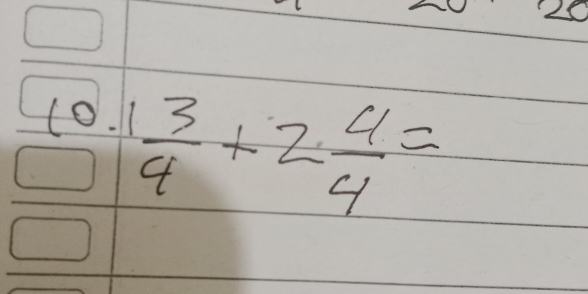 10. 1 3/4 + 2 4/4 =